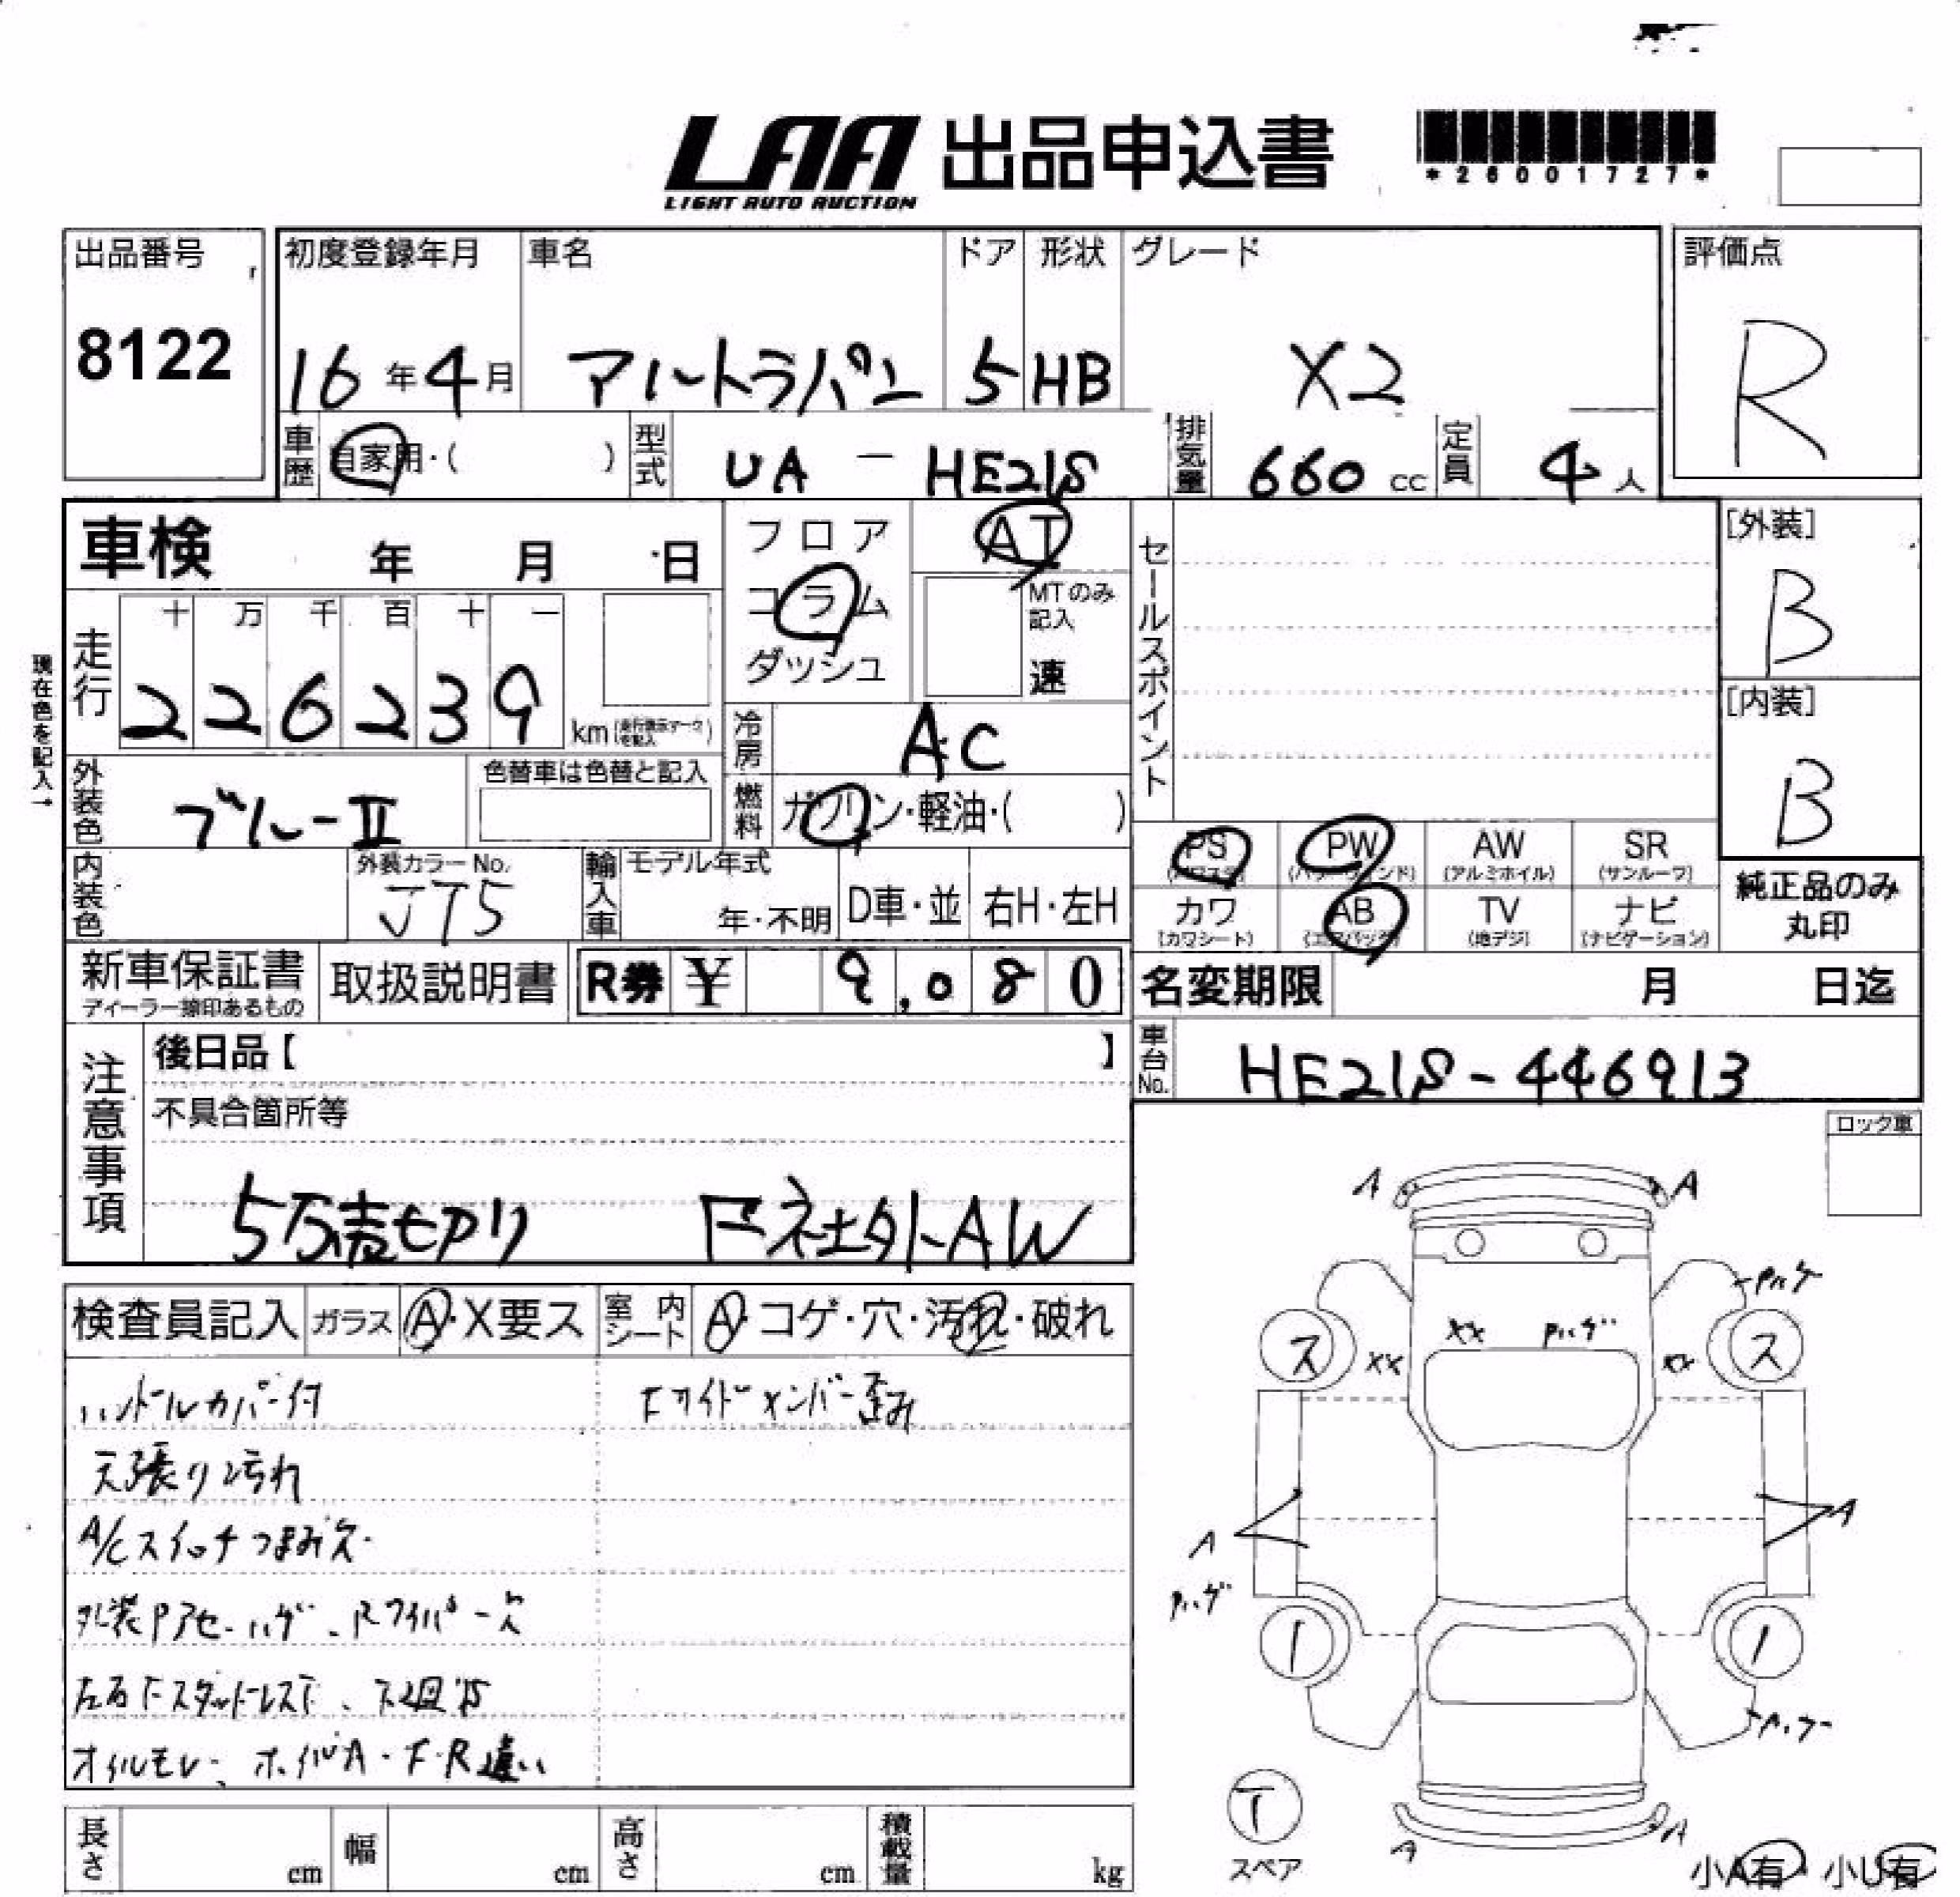 LAA 出品申込書
LIGHT AUTO AUCTION
*26001727*
出品番号
8122
初度登録年月 車名 ドア 形状 グレード
16年4月 アルトラパン 5 HB X2
評価点
R
車歴 自家用・( ) 型式 UA - HE21S 排気量 660 cc 定員 4人
車検 年 月 日
フロア
コラム
ダッシュ
AT
MTのみ記入
速
セールスポイント
[外装]
B
[内装]
B
現在色を記入→
走行 十 万 千 百 十 一
226239 km
冷房 AC
外装色 ブルーII 色替車は色替と記入
燃料 ガソリン・軽油・( )
内装色 外装カラーNo. JT5
輸入車 モデル年式 年・不明 D車・並 右H・左H
PS PW AW SR
(パワステ) (パワーウインド) (アルミホイル) (サンルーフ)
カワ AB TV ナビ
(カワシート) (エアバック) (地デジ) (ナビゲーション)
純正品のみ
丸印
新車保証書 取扱説明書 R券 ¥ 9,080
ディーラー捺印あるもの
名変期限 月 日迄
車台No. HE21S-446913
注意事項
後日品【 】
不具合箇所等
F社外AW
ロック車
検査員記入 ガラス A・X要ス 室内シート A・コゲ・穴・汚れ・破れ
ハンドルカバー付
天張り汚れ
A/Cスイッチつまみ欠
オイルモレ、ホイルA・F・R違い
A A
Pハゲ
XX Pハゲ
ス XX XX ス
A A
Pハゲ
Pハゲ
T
スペア
A A
小A有・小U有
長さ cm 幅 cm 高さ cm 積載量 kg